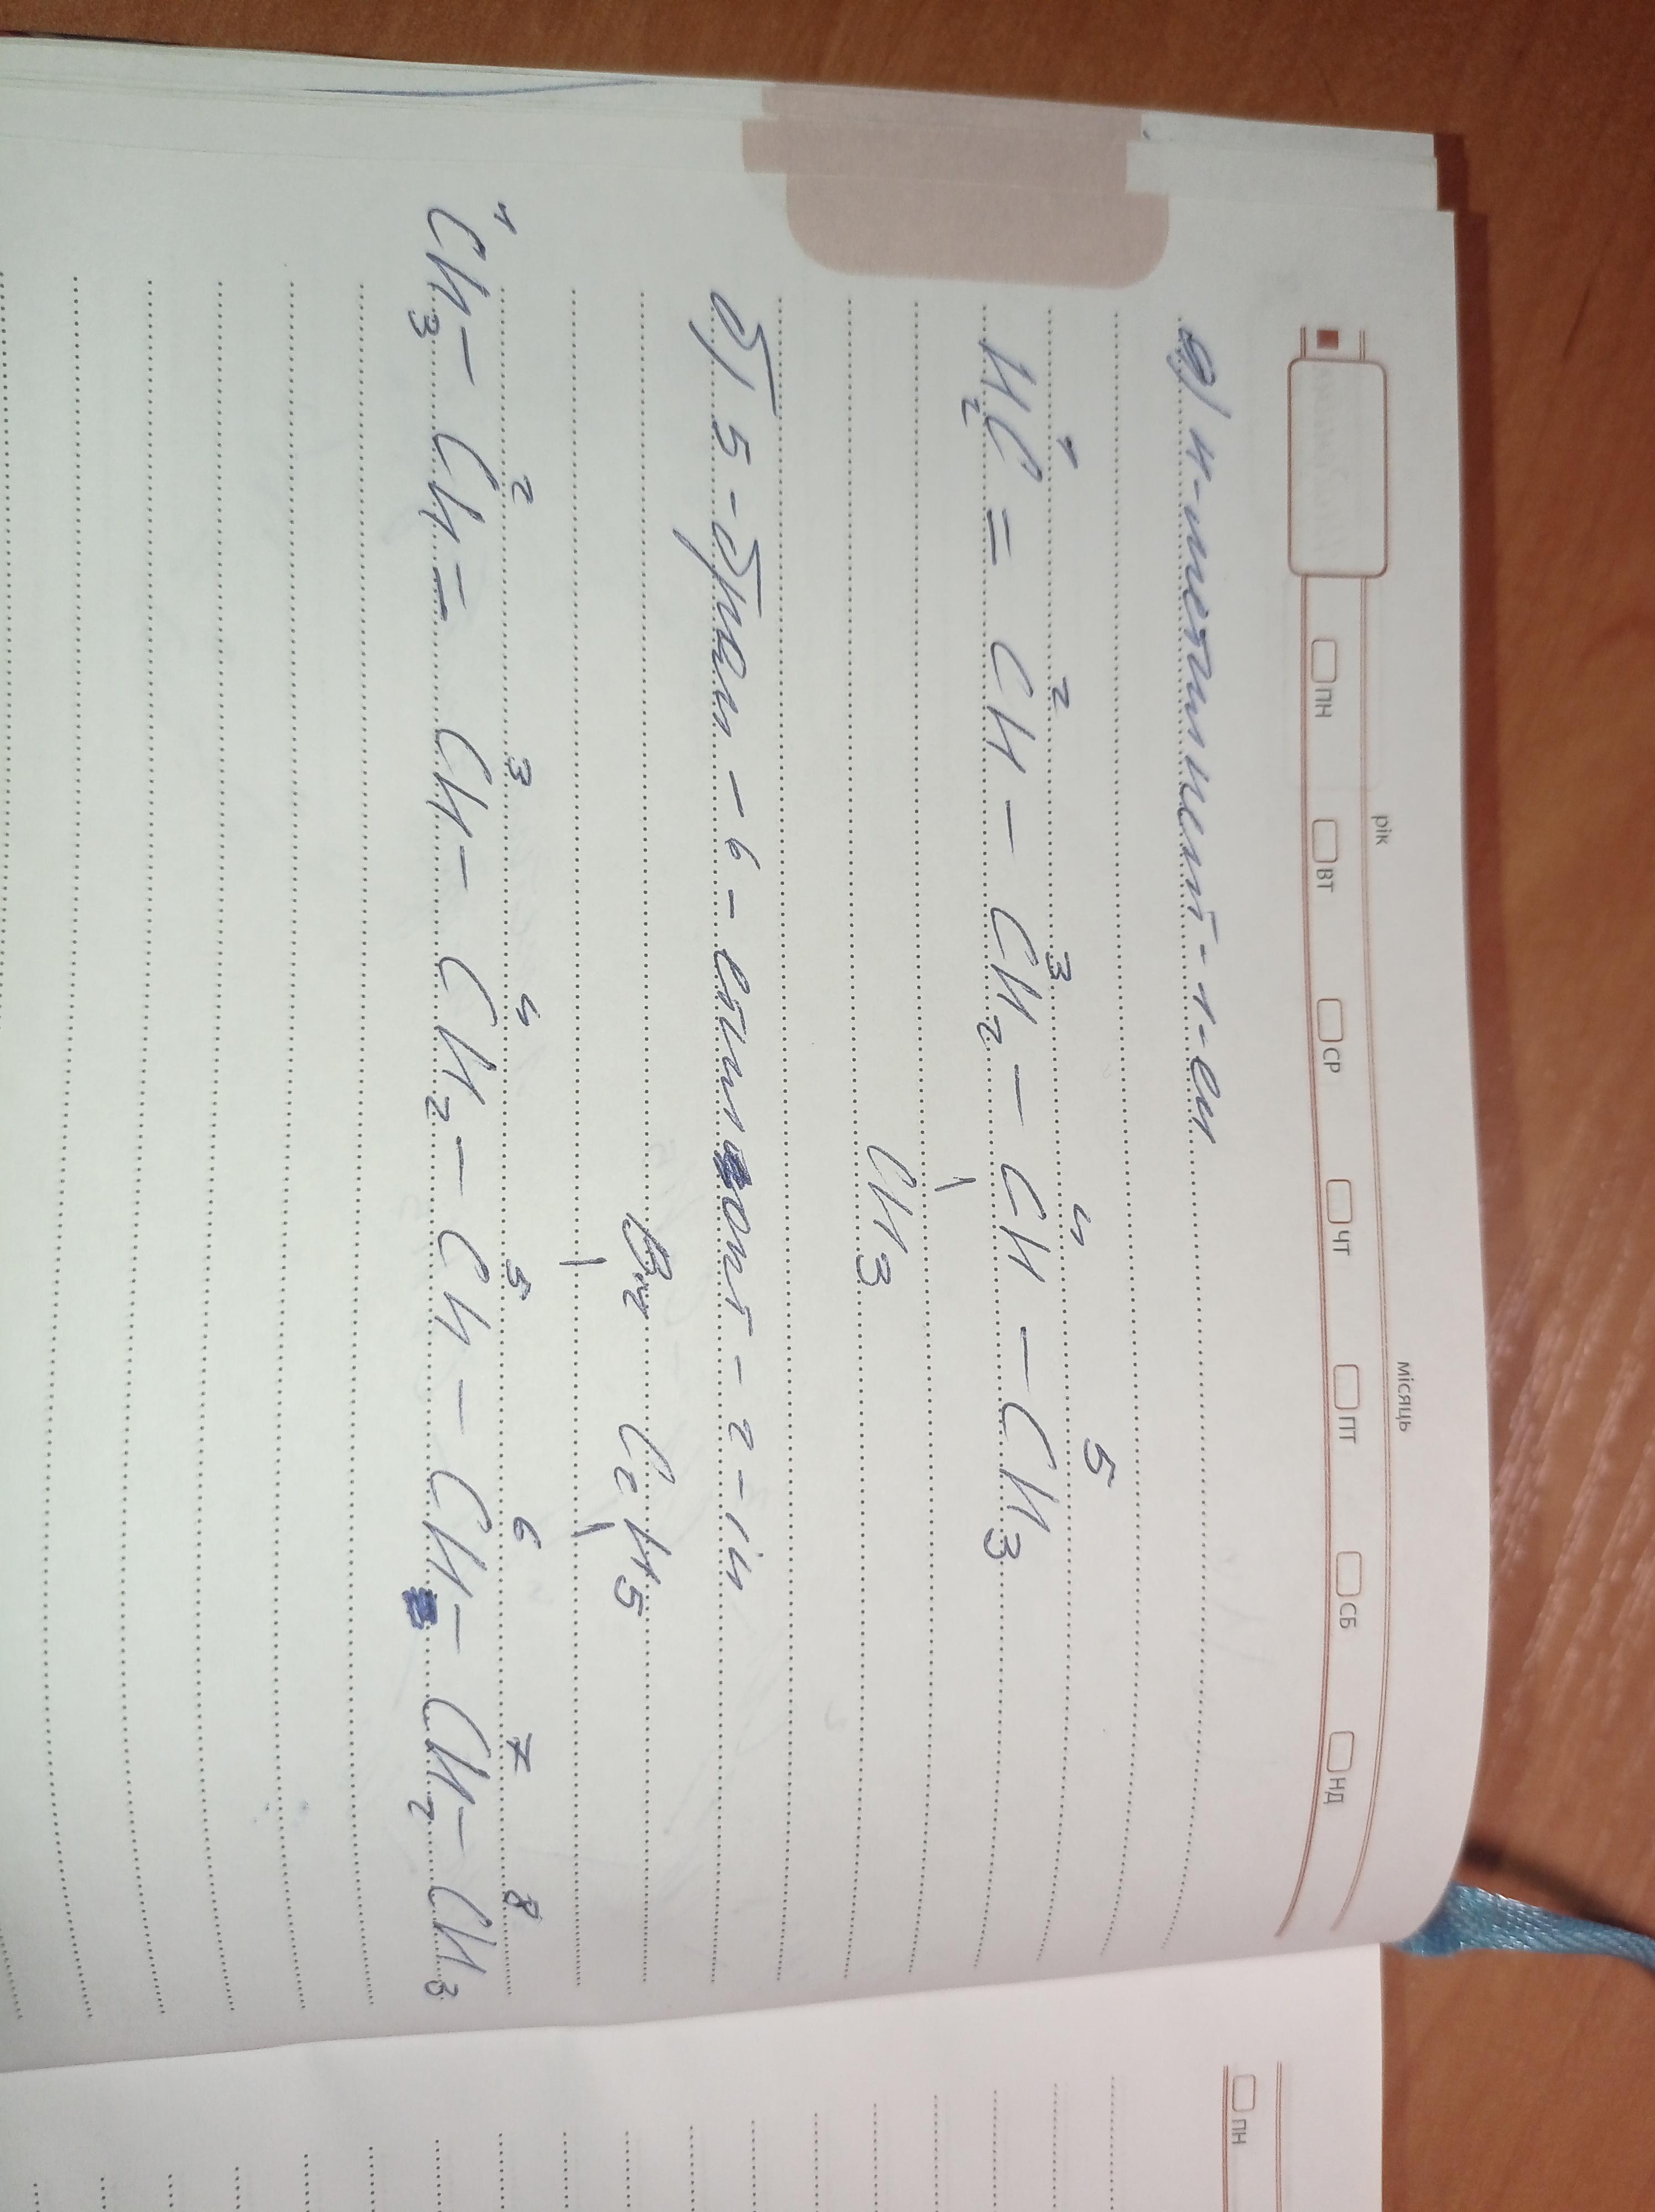 рік місяць
ПН ВТ СР ЧТ ПТ СБ НД
а) 4-метилпент-1-ен
1 2 3 4 5
H2C = CH - CH2 - CH - CH3
CH3
б) 5-бром-6-етилокт-2-ін
Br C2H5
1 2 3 4 5 6 7 8
CH3 - CH = CH - CH2 - CH - CH - CH2 - CH3
ПН